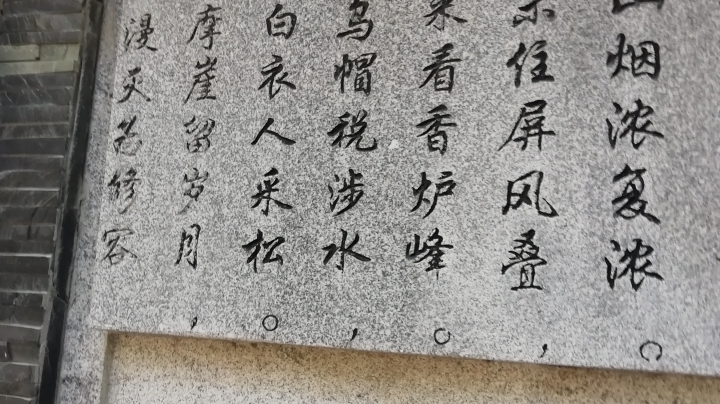 烟浓复浓。
住屏风叠，
来看香炉峰。
乌帽税涉水，
白衣人采松。
摩崖留岁月，
漫灭修容